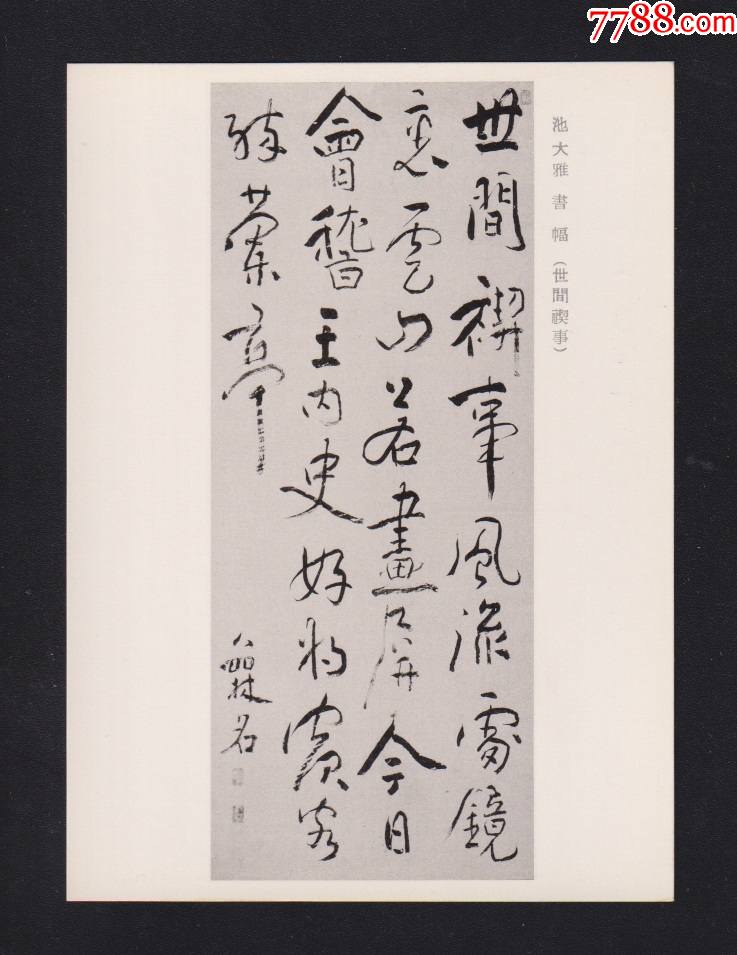 7788.com
池大雅 書 幅 (世間禊事)
世間禊事風流處鏡
裏雲山若畫屏今日
會稽王内史好將賓客
醉蘭亭